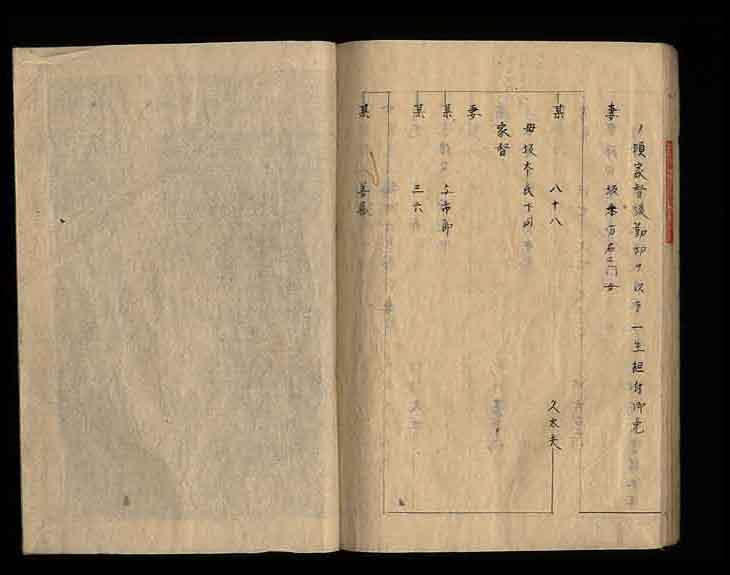 ノ頃家督後勤功ヲ以テ一生組付御免
妻 坂本百右エ門女
某 八十八 久太夫
母坂本氏下同
家督
妻
某 与市郎
某 三六
某 善蔵